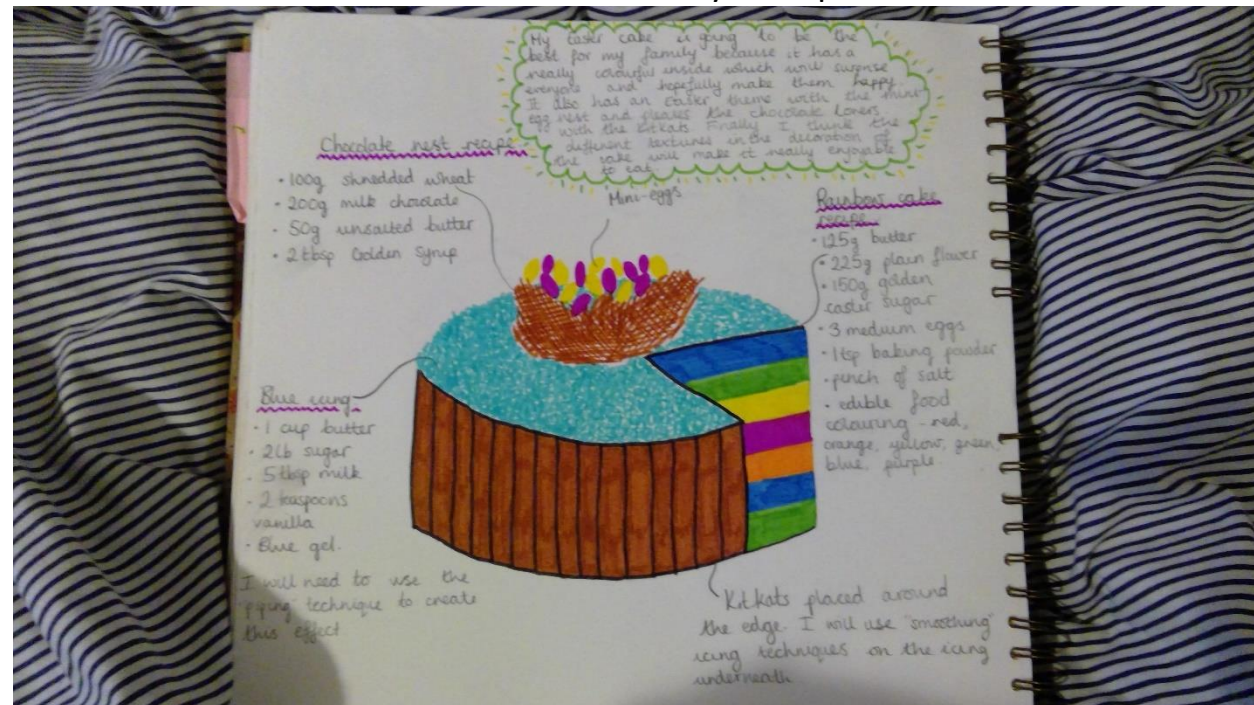 My Easter cake is going to be the
best for my family because it has a
really colourful inside which will surprise
everyone and hopefully make them happy.
It also has an Easter theme with the mini
egg nest and pleases the chocolate lovers
with the kitkats. Finally I think the
different textures in the decoration of
the cake will make it really enjoyable
to eat.
Chocolate nest recipe
• 100g shredded wheat
• 200g milk chocolate
• 50g unsalted butter
• 2 tbsp Golden Syrup
Mini-eggs
Rainbow cake
recipe.
• 125g butter
• 225g plain flower
• 150g golden
caster sugar
• 3 medium eggs
• 1tsp baking powder
• pinch of salt
• edible food
colouring - red,
orange, yellow, green,
blue, purple.
Blue icing
• 1 cup butter
• 2lb sugar
• 5 tbsp milk
• 2 teaspoons
vanilla
• Blue gel.
I will need to use the
"piping" technique to create
this effect
Kitkats placed around
the edge. I will use "smoothing"
icing techniques on the icing
underneath